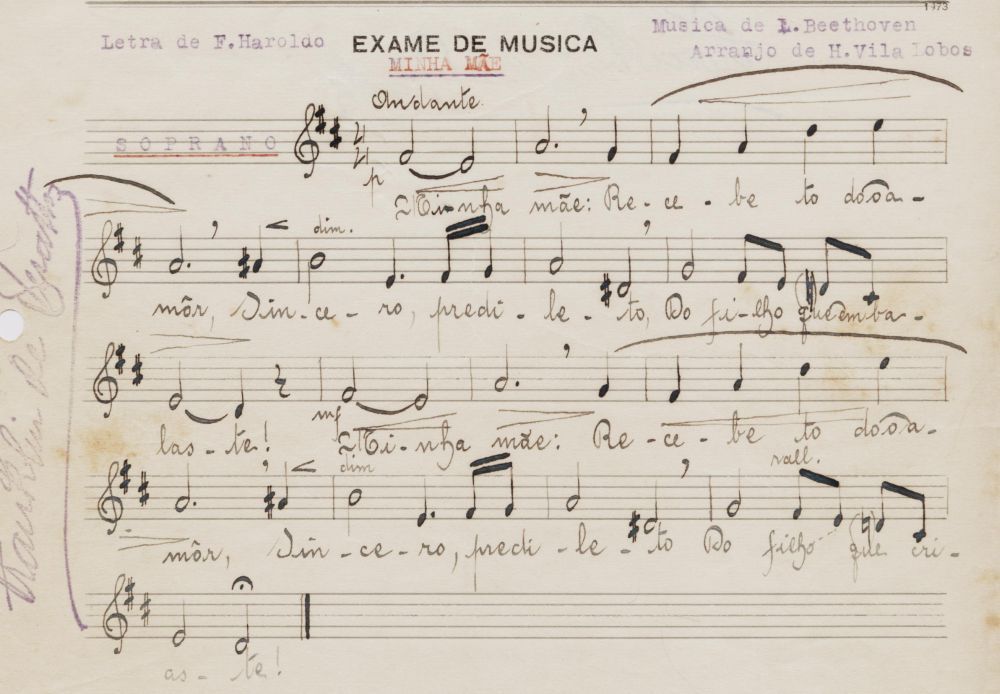 1473
Letra de F.Haroldo EXAME DE MUSICA Musica de L.Beethoven
MINHA MÃE Arranjo de H.Vila Lobos
Andante.
SOPRANO
p
Mi-nha mãe: Re-ce-be to do o a-
dim.
môr, Sin-ce-ro, predi-le-to, Do fi-lho que em ba-
las-te! mf Mi-nha mãe: Re-ce-be to do o a-
dim rall.
môr, Sin-ce-ro, predi-le-to Do filho que cri-
as-te!